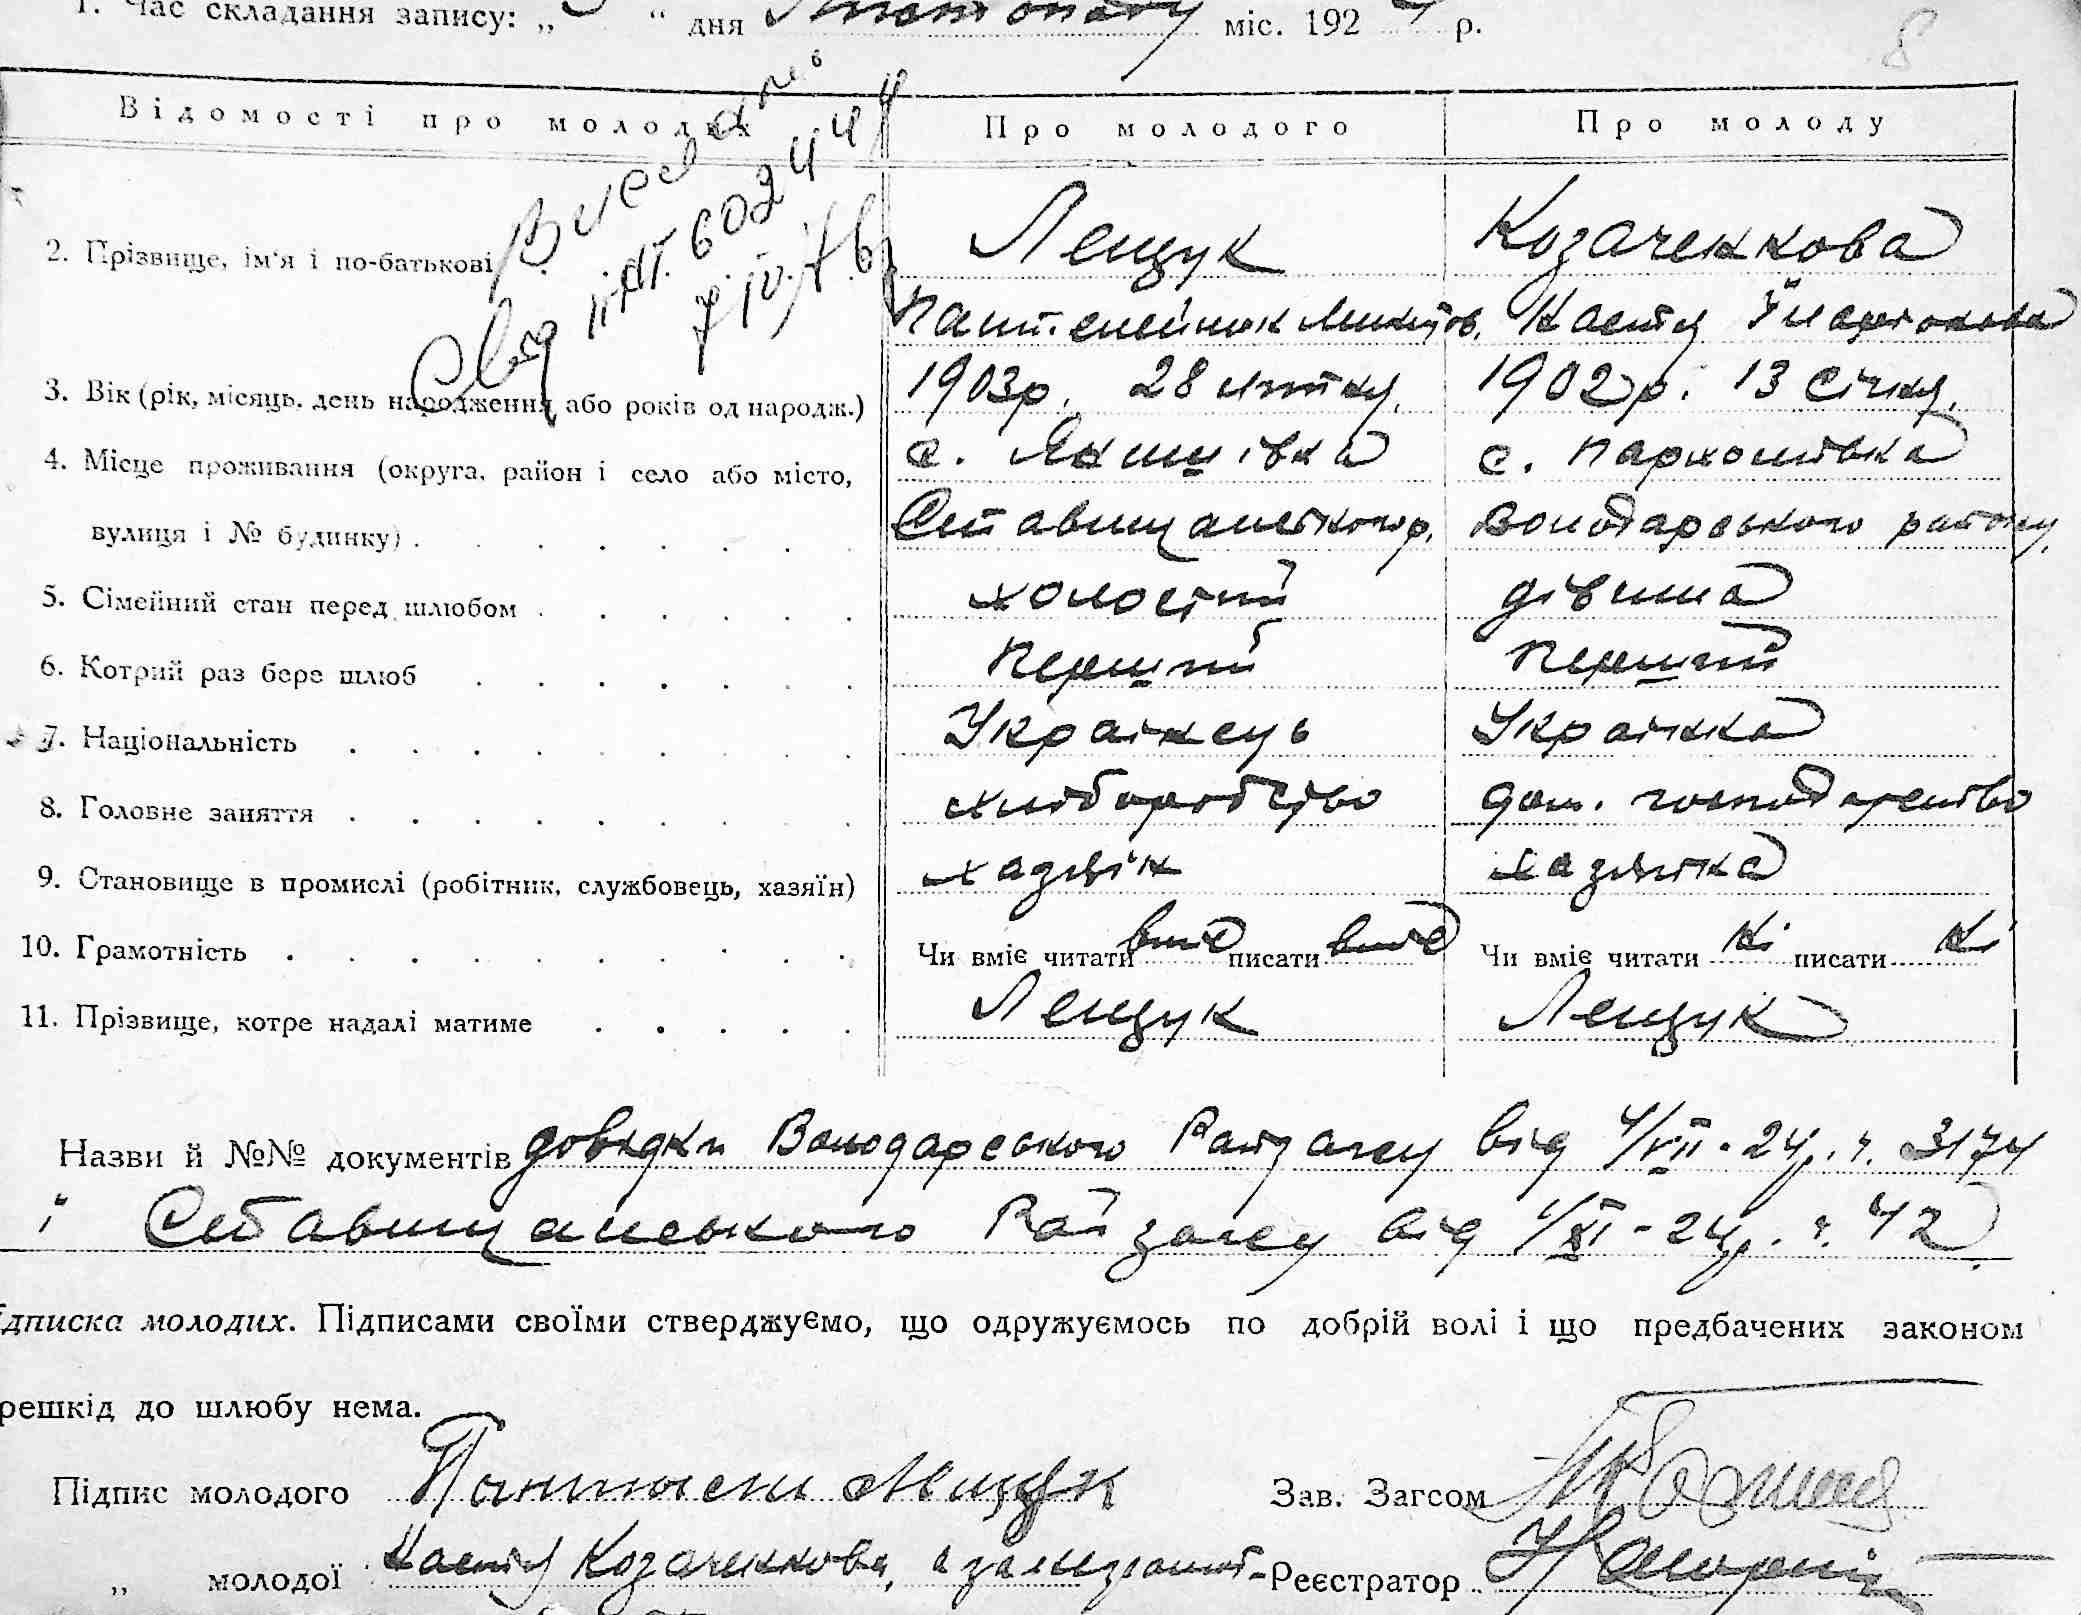 1. Час складання запису: „ “ дня Листопаду міс. 1924 р.
8
Відомості про молодих
Про молодого
Про молоду
Свід II-АТ 602444
7.IV.76
2. Прізвище, ім'я і по-батькові
Лещук
Козаченкова
Пантелеймон Микитов.
Настя
3. Вік (рік, місяць, день народження або років од народж.)
1903р. 28 лютня,
1902р. 13 січня,
4. Місце проживання (округа, район і село або місто,
с. Якимівка
с. Пархомівка
вулиця і № будинку) .
Ставищанського р.
Володарського району,
5. Сімейний стан перед шлюбом .
холостий
дівчина
6. Котрий раз бере шлюб
Перший
Перший
7. Національність
Українець
Українка
8. Головне заняття
хліборобство
дом. господарство
9. Становище в промислі (робітник, службовець, хазяїн)
хазяїн
хазяйка
10. Грамотність
Чи вміє читати вміє писати вміє
Чи вміє читати ні писати ні
11. Прізвище, котре надалі матиме
Лещук
Лещук
Назви й №№ документів довідки Володарського Райзагсу від 4/VII-24р. ч. 3174
і Ставищанського Райзагсу від 1/XI-24р. ч. 42
дписка молодих. Підписами своїми стверджуємо, що одружуємось по добрій волі і що предбачених законом
решкід до шлюбу нема.
Підпис молодого Лещук
Зав. Загсом
„ молодої Настя Козаченкова, а за неграмот-
Реєстратор